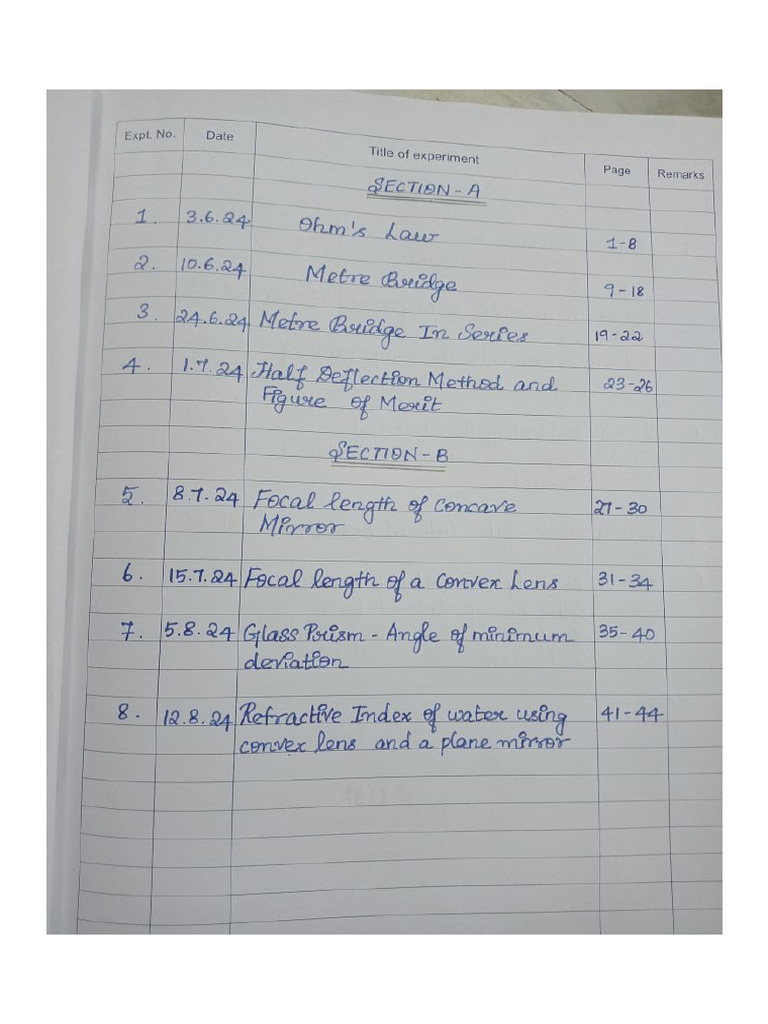 Expt. No. Date Title of experiment Page Remarks
SECTION - A
1. 3.6.24 Ohm's Law 1-8
2. 10.6.24 Metre Bridge 9-18
3. 24.6.24 Metre Bridge In Series 19-22
4. 1.7.24 Half Deflection Method and 23-26
Figure of Merit
SECTION - B
5. 8.7.24 Focal length of Concave 27-30
Mirror
6. 15.7.24 Focal length of a Convex Lens 31-34
7. 5.8.24 Glass Prism - Angle of minimum 35-40
deviation
8. 12.8.24 Refractive Index of water using 41-44
convex lens and a plane mirror